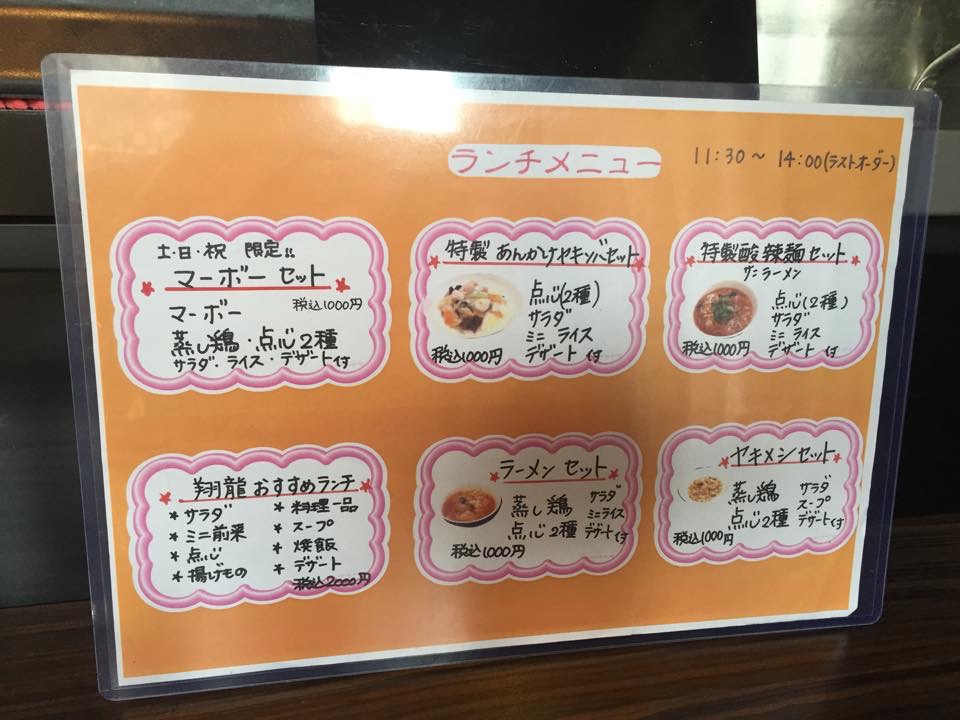 ランチメニュー 11:30〜14:00(ラストオーダー)
土・日・祝 限定!!
マーボーセット
税込1000円
マーボー
蒸し鶏・点心2種
サラダ・ライス・デザート付
特製あんかけヤキソバセット
点心(2種)
サラダ
ミニライス
デザート付
税込1000円
特製酸辣麺セット
サンラーメン
点心(2種)
サラダ
ミニライス
デザート付
税込1000円
翔龍おすすめランチ
*サラダ
*ミニ前菜
*点心
*揚げもの
*料理一品
*スープ
*焼飯
*デザート
税込2000円
ラーメンセット
蒸し鶏 サラダ
ミニライス
点心2種 デザート付
税込1000円
ヤキメシセット
蒸し鶏 サラダ
スープ
点心2種 デザート付
税込1000円